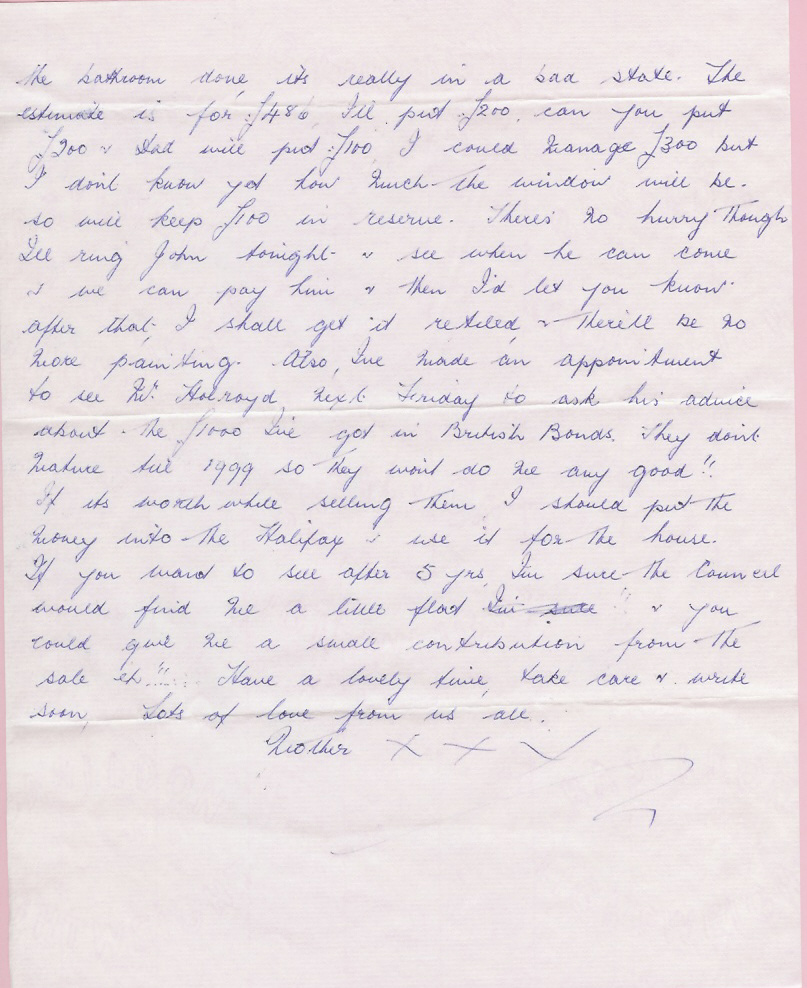 the bathroom done, its really in a bad state. The
estimate is for £486, I'll put £200, can you put
£200 & Dad will put £100, I could manage £300 but
I don't know yet how much the window will be.
so will keep £100 in reserve. There's no hurry though
I'll ring John tonight & see when he can come
& we can pay him & then I'd let you know
after that. I shall get it retiled, & there'll be no
more painting. Also, I've made an appointment
to see Mr. Holroyd, next Friday to ask his advice
about the £1000 I've got in British Bonds. They don't
mature till 1999 so they won't do me any good!!
If its worth while selling them, I should put the
money into the Halifax & use it for the house.
If you want to sell after 5 yrs, I'm sure the Council
would find me a little flat I'm sure " & you
could give me a small contribution from the
sale eh!!! Have a lovely time, take care & write
soon, Lots of love from us all.
Mother X X X